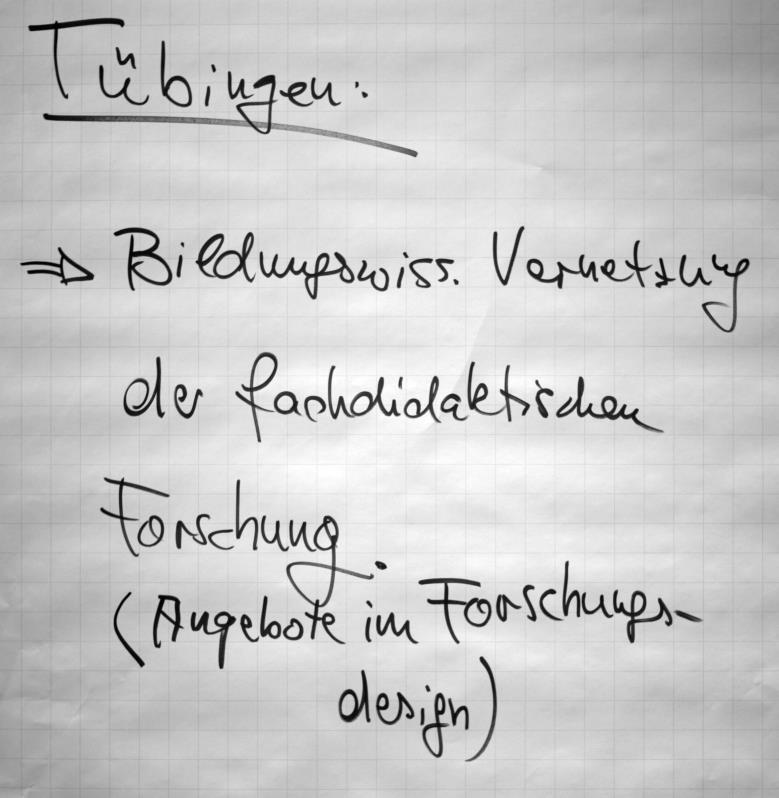 Tübingen:
⇒ Bildungswiss. Vernetzung
der fachdidaktischen
Forschung.
(Angebote im Forschungs-
design)